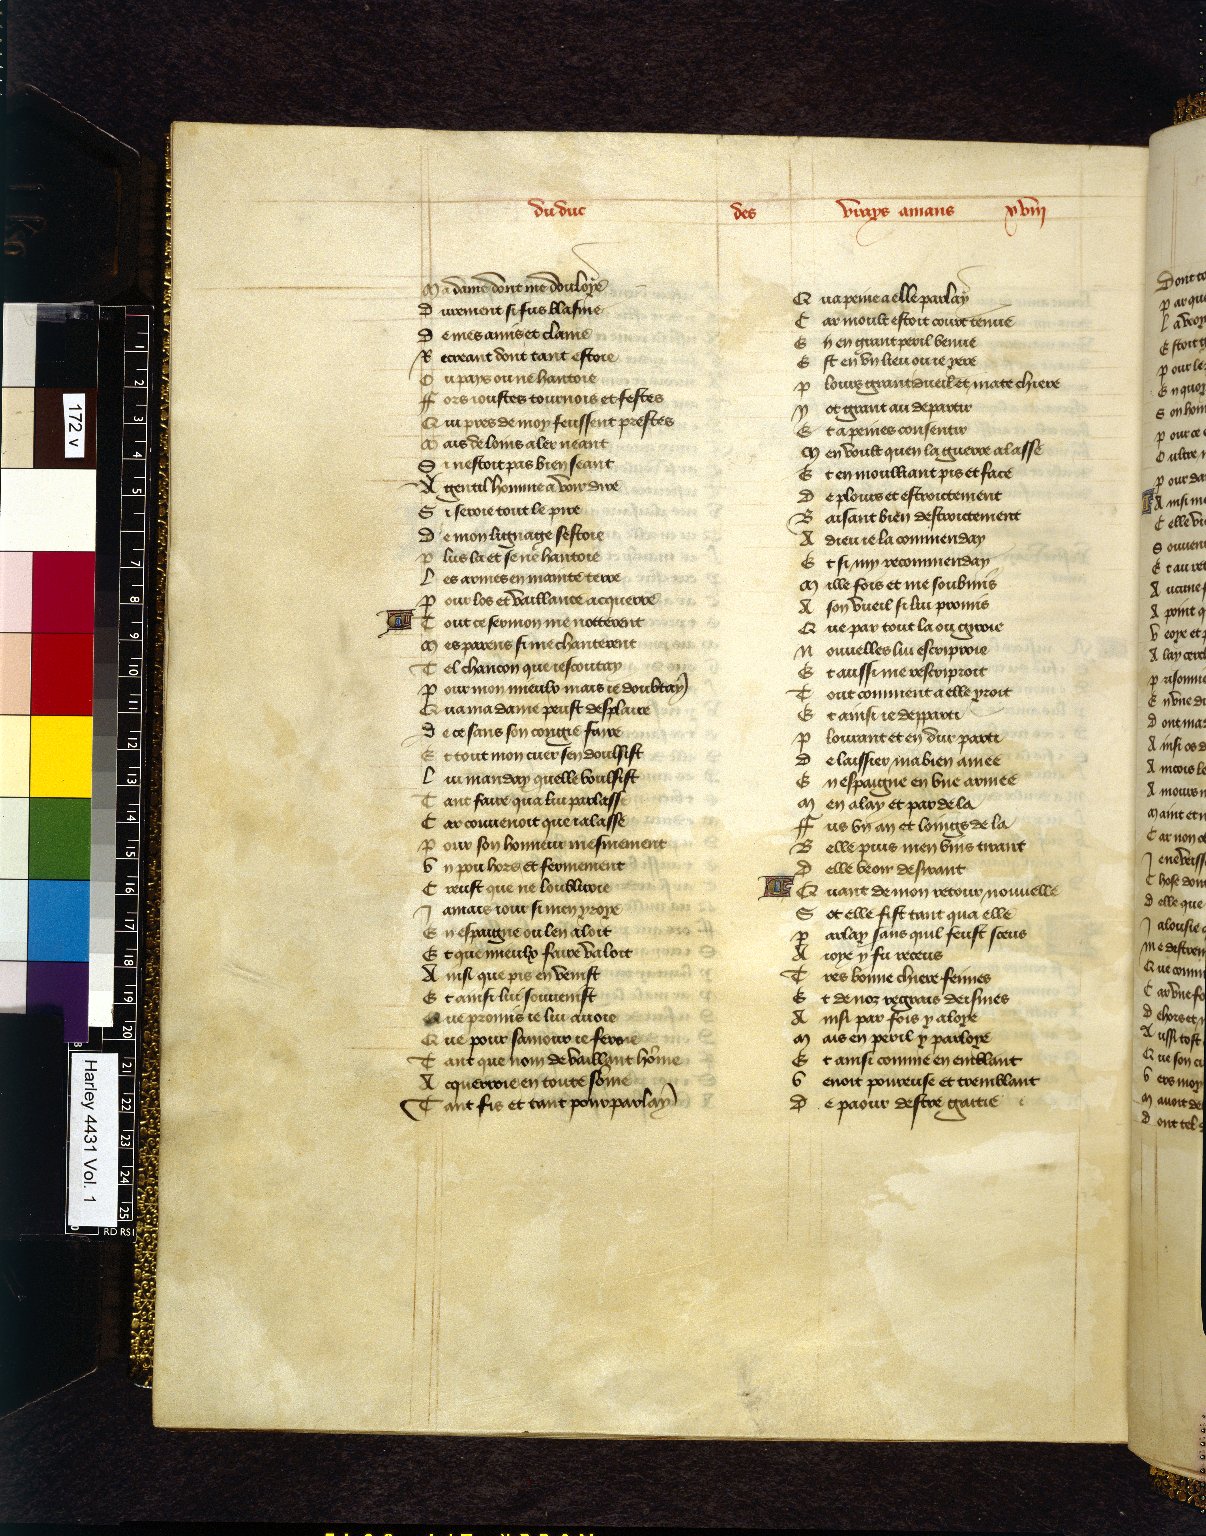 du duc des vrays amans xviii
Ma dame dont me douloye
Durement si fus blasme
De mes amis et clame
Recreant dont tant estoie
Ou pays ou ne hantoie
Fors ioustes tournois et festes
Qui pres de moy feussent prestes
Mais de loins aler neant
Si nestoit pas bien seant
A gentil homme a voir dire
Si seroie tout le pire
De mon lignage sestoie
Plus la et se ne hantoie
Les armes en mainte terre
Pour los et vaillance acquerre
Tout ce sermon me notterent
Mes parens si me chanterent
Tel chancon que iescoutay
Pour mon mieulx mais ie doubtay
Qua ma dame peust desplaire
De ce sans son congie faire
Et tout mon cuer sen doulsist
Lui manday quelle voulsist
Tant faire qua lui parlasse
Car couvenoit que ialasse
Pour son honneur mesmement
Un pou hors et fermement
Creust que ne loublieroie
Jamais iour si men yroye
En espaigne ou len aloit
Et que mieulx faire valoit
Ainsi que pis en venist
Et ainsi lui souvenist
Que promis ie lui avoie
Que pour samour ie feroie
Tant que nom de vaillant hom̄e
Acquerroie en toute som̄e
Tant fis et tant pourparlay
Qua peine a elle parlay
Car moult estoit court tenue
En en grant peril venue
Est en un lieu ou ie yere
Plours grant dueil et mate chiere
Y ot grant au departir
Et a peines consentir
Men voult quen la guerre alasse
Et en moulliant pis et face
De plours et estroictement
Baisant bien destroictement
A dieu ie la commenday
Et si my recommenday
Mille fois et me soubmis
A son vueil si lui promis
Que par tout la ou giroie
Nouvelles lui escriproie
Et aussi me rescriproit
Tout comment a elle yroit
Et ainsi ie departi
Plourant et en dur parti
De laissier ma bien amee
En espaigne en une armee
Men alay et par de la
Fus un an et loings de la
Belle puis men vins tirant
Delle veoir desirant
Quant de mon retour nouvelle
Sot elle fist tant qua elle
Parlay sans quil feust sceus
A ioye y fu receus
Tres bonne chiere feimes
Et de noz regrais deismes
Ainsi par fois y aloye
Mais en peril y parloye
Et ainsi comme en emblant
Venoit poureuse et tremblant
De paour destre gaitie
172 v
Harley 4431 Vol. 1